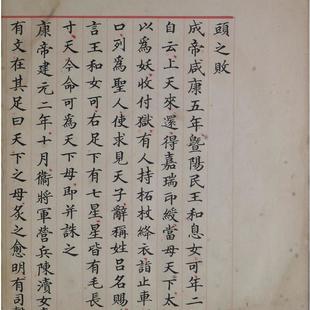 頭之敗
成帝咸康五年暨陽民王和息女可年二
自云上天來還得嘉瑞印綬當母天下太
以為妖收付獄有人持拓杖絳衣詣止車
口列為聖人使求見天子辭稱姓呂名賜
言王和女可右足下有七星星皆有毛長
寸天今命可為天下母即并誅之
康帝建元二年十月衞將軍營兵陳瀆女
有文在其足曰天下之母灸之愈明有司